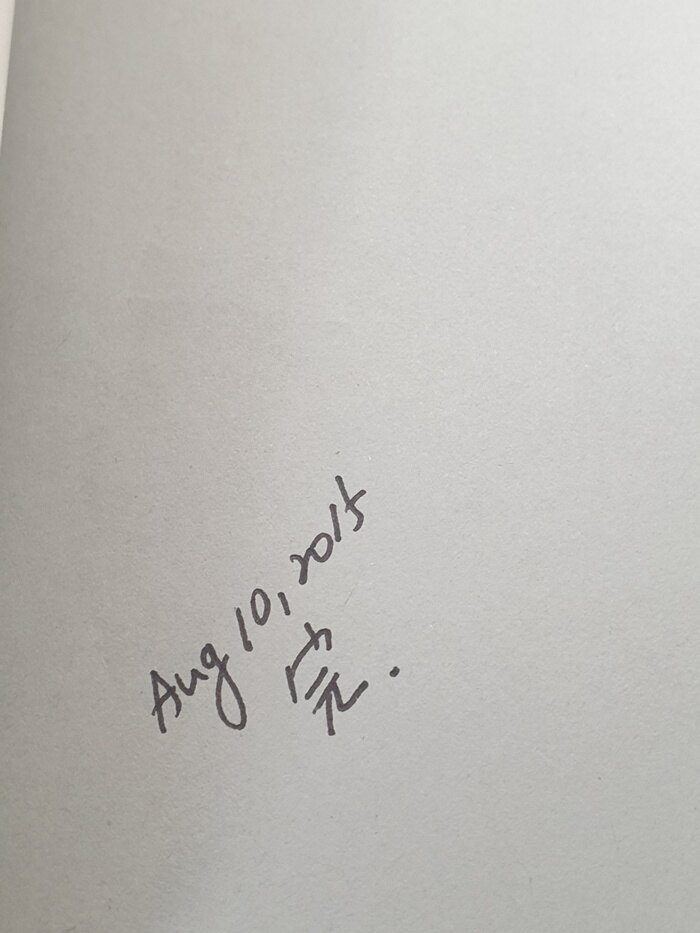 Aug 10, 2015
完.